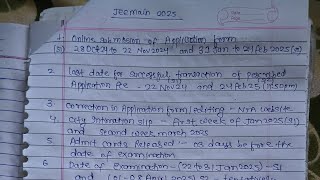 Jeemain 2025
1. Online submission of Application form
(S1) 28 Oct 24 to 22 Nov 2024 and 31 Jan to 24 Feb 2025 (S2)
2. last date for successful transaction of prescribed
Application fee - 22 Nov 24 and 24 Feb 25 (11:50pm)
3. Correction in Application form/editing - NTA website
4. City Intimation Slip - First week of Jan 2025 (S1)
and second week march 2025
5. Admit cards Released - 03 days before the
date of examination
6. Date of Examination - (22 to 31 Jan 2025) - S1
and (01-08 April 2025) S2 - tentatively